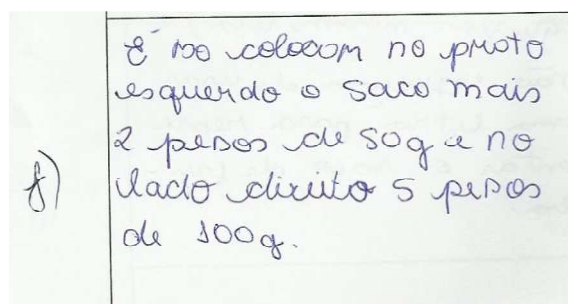 É so colocam no prato
esquerdo o saco mais
2 pesos de 50g e no
f) lado direito 5 pesos
de 100g.